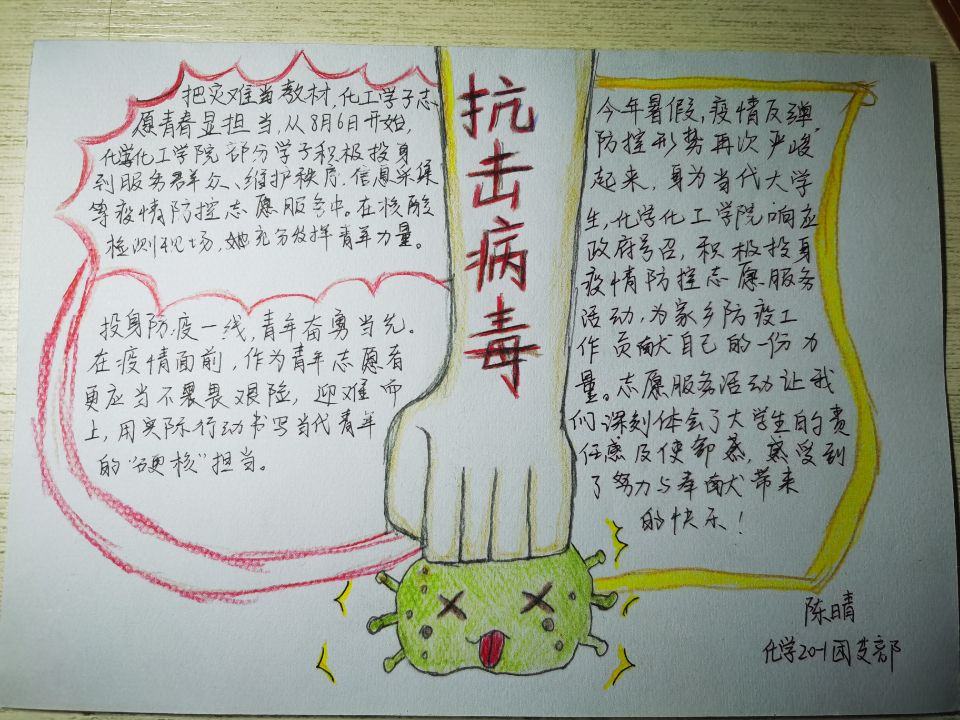 抗击病毒
把灾难当教材,化工学子志
愿青春显担当,从8月6日开始,
化学化工学院部分学子积极投身
到服务群众、维护秩序、信息采集
等疫情防控志愿服务中。在核酸
检测现场,她充分发挥青年力量。
投身防疫一线,青年奋勇当先。
在疫情面前,作为青年志愿者
更应当不畏艰险,迎难而
上,用实际行动书写当代青年
的“硬核”担当。
今年暑假,疫情反弹
防控形势再次严峻
起来,身为当代大学
生,化学化工学院响应
政府号召,积极投身
疫情防控志愿服务
活动,为家乡防疫工
作贡献自己的一份力
量。志愿服务活动让我
们深刻体会了大学生的责
任感及使命感,感受到
了努力与奉献带来
的快乐!
陈晴
化学20-1团支部